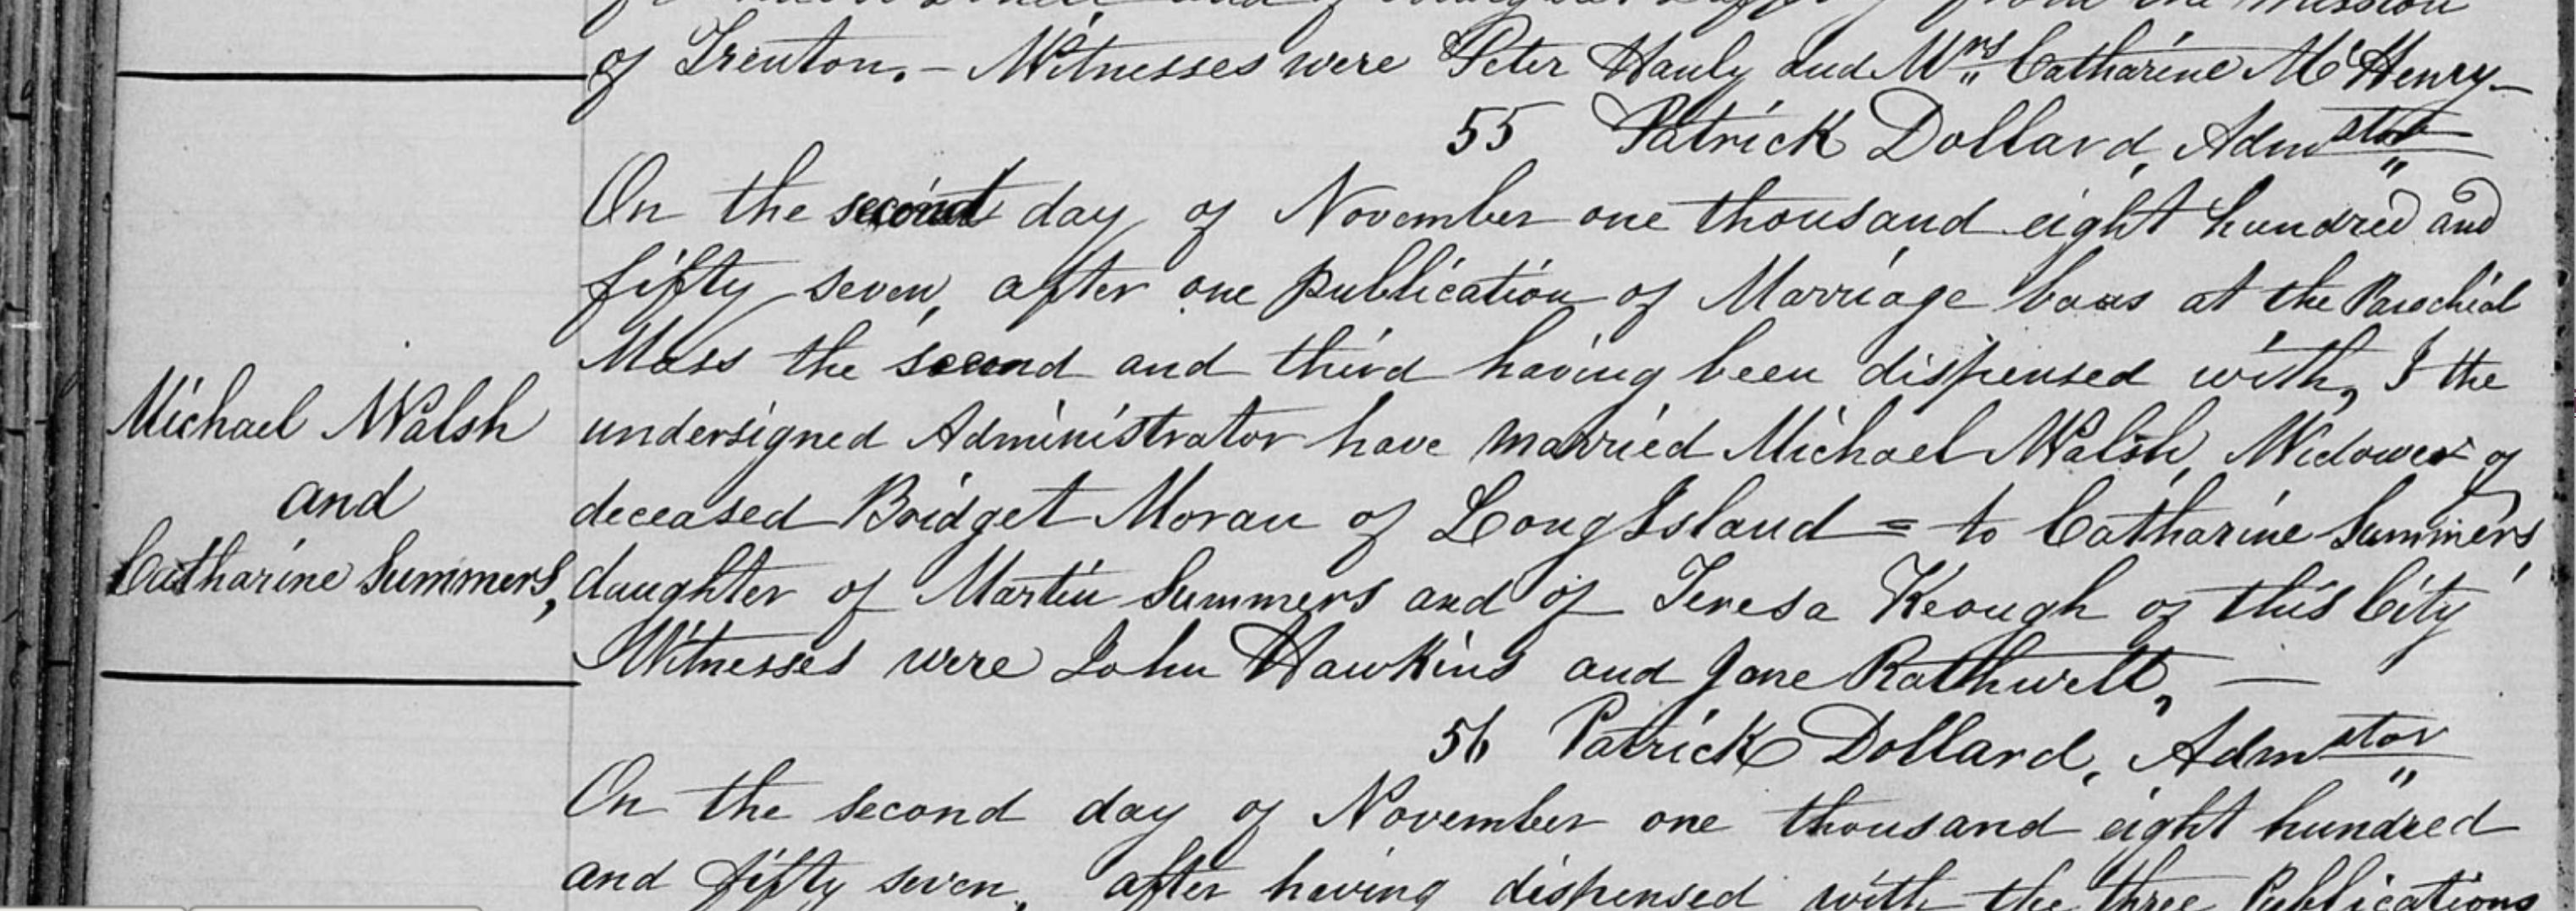 of Trenton. - Witnesses were Peter Hauly and Mrs. Catharine McHenry -
55 Patrick Dollard, Admstor
On the second day of November one thousand eight hundred and
fifty seven, after one publication of Marriage bans at the Parochial
Mass the second and third having been dispensed with, I the
undersigned Administrator have married Michael Walsh, Widower of
deceased Bridget Moran of Long Island = to Catharine Summers,
daughter of Martin Summers and of Teresa Keough of this City
Witnesses were John Hawkins and Jane Rathwell, —
Michael Walsh
and
Catharine Summers,
56 Patrick Dollard, Admstor
On the second day of November one thousand eight hundred
and fifty seven, after having dispensed with the three Publications